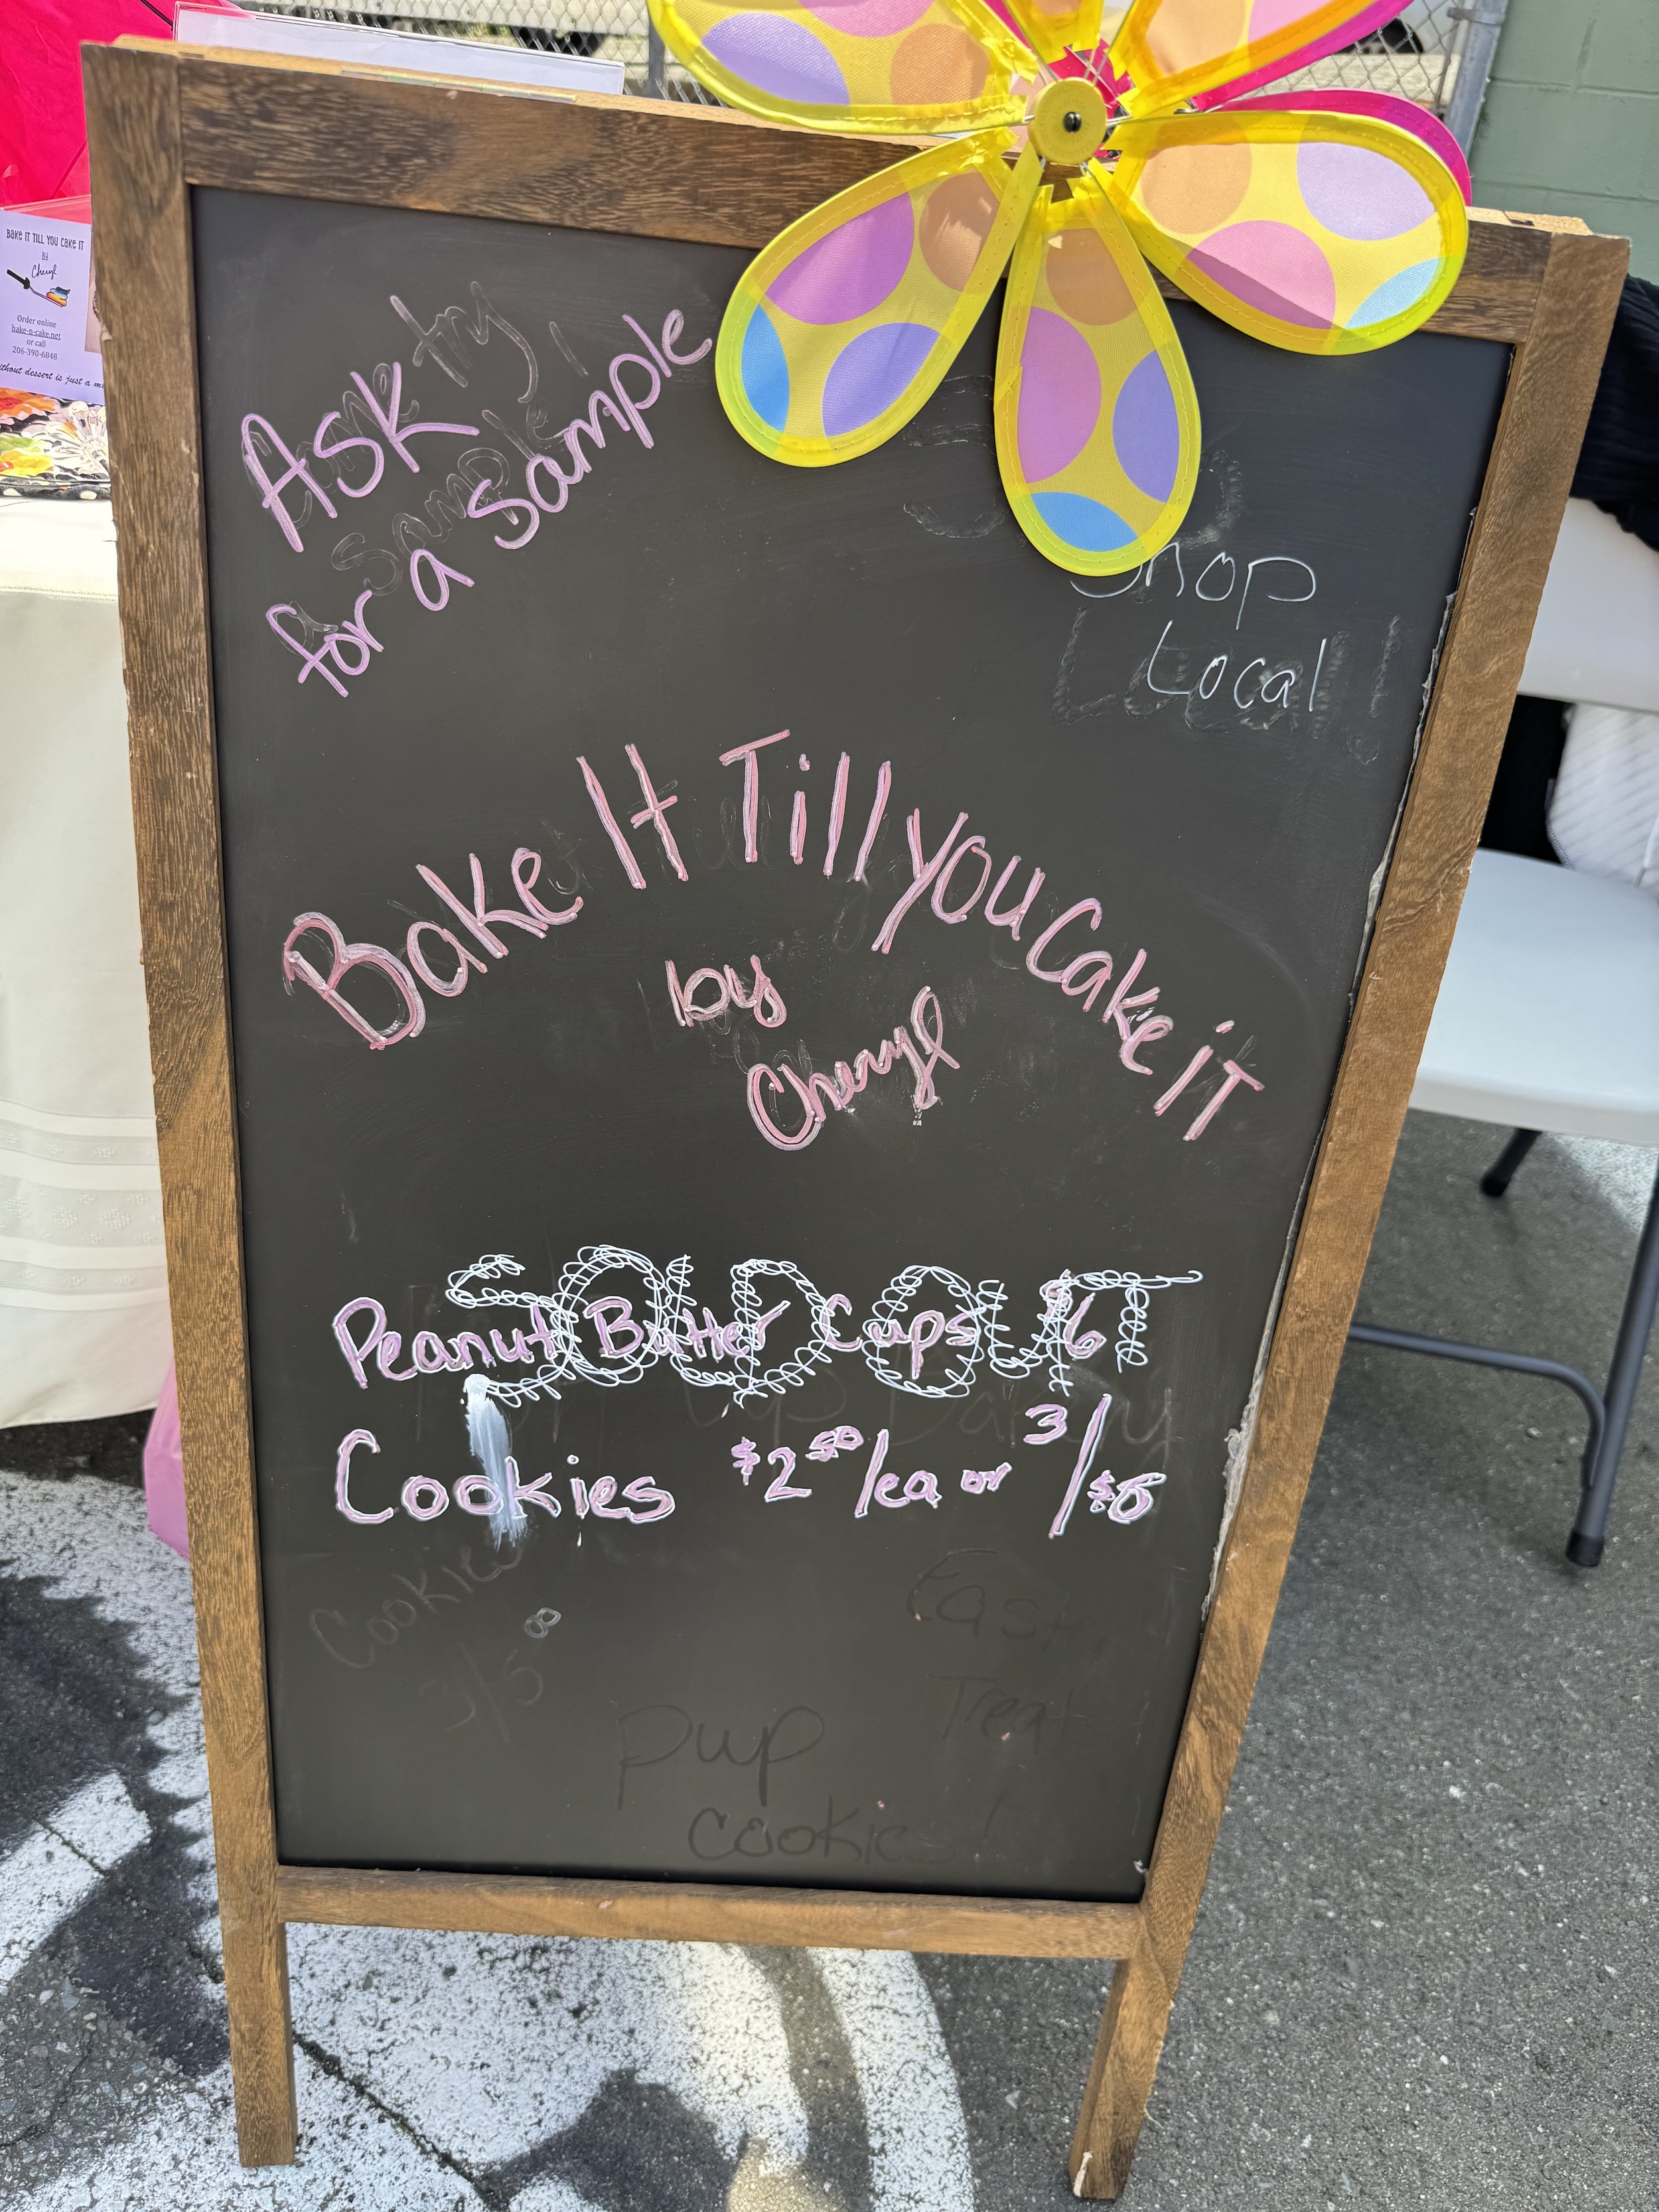 BAKE IT TILL YOU CAKE IT
BY
Cheryl
Order online
bake-n-cake.net
or call
206-390-6848
ithout dessert is just a m
Ask try
for a sample
sample
Shop
Local
Bake It Till you Cake IT
by
Cheryl
SOLD OUT
Peanut Butter Cups $6
Cookies $2 50/ea or 3/$6
Cookies
3/5 00
East
Treat
pup
cookie